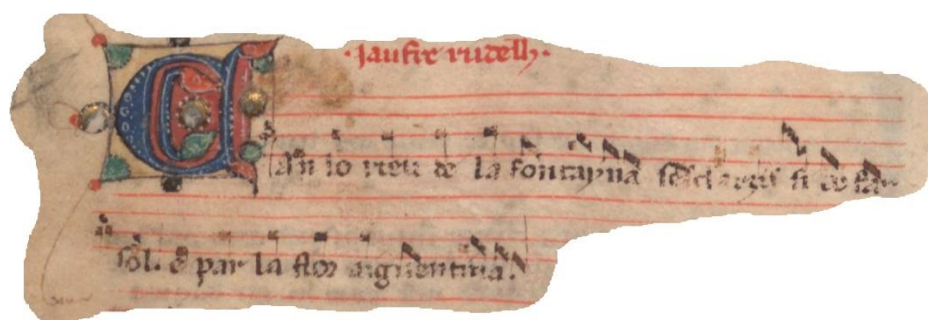 ·Jaufre rudelh·
Can lo rieu de la fontayna sesclarzis si co far
sol. e par la flor aiguentina.